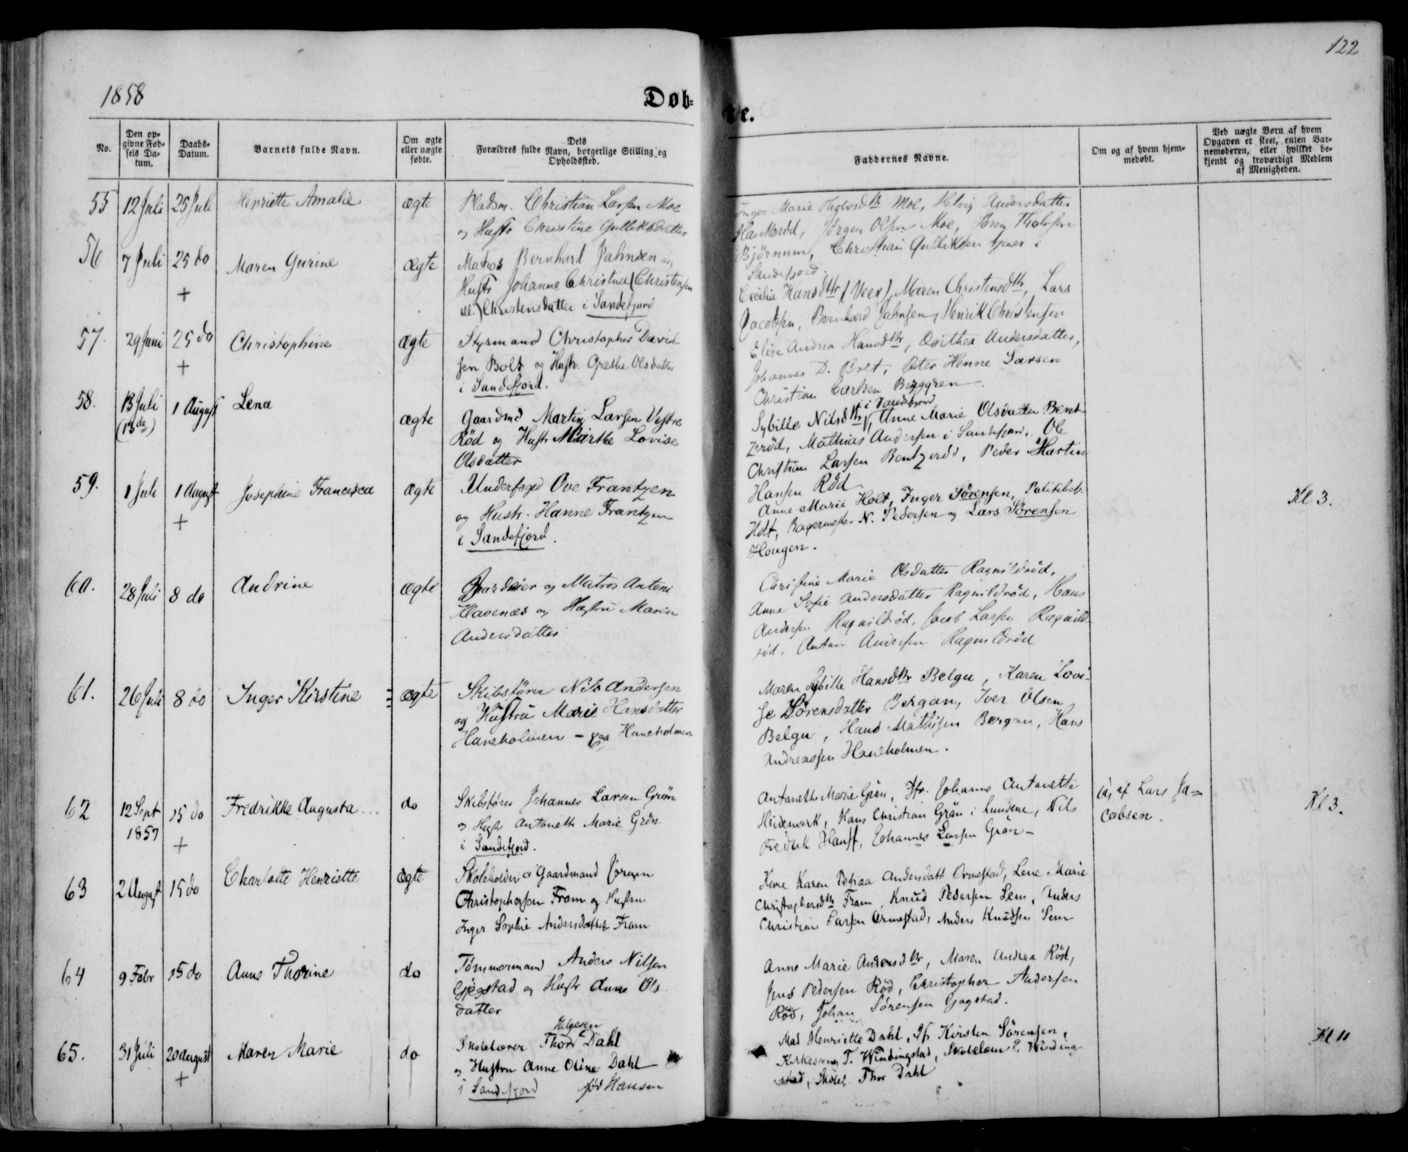 122
1858
Døbte.
No.
Den opgivne Fødsels Datum.
Daabs-Datum.
Barnets fulde Navn.
Om ægte eller uægte fødte.
Dets Forældres fulde Navn, borgerlige Stilling og Opholdssted.
Faddernes Navne.
Om og af hvem hjemmedøbt.
Ved uægte Børn af hvem Opgaven er skeet, enten Barnemoderen, eller hvilket bekjendt og troværdigt Medlem af Menigheden.
55 12 Juli 25 Juli Henriette Amalie ægte
Pladsm. Christian Larsen Moe
og Hustr Christine Gulliksdatter
Inger Marie Tholvsdtr Moe, Andersdatter
Jørgen Olsen Moe,
Bjørnum, Christian Gulliksen i
Sandefjord.
56 7 Juli 25 do Maren Gurine ægte
+
Matros Bernhard Jahnsen og
Hustr Johanne Christina (Christensen
Christensdatter i Sandefjord
Cecilia Hansdtr (Veer), Maren Christensdtr, Lars
Jacobsen, Bernhard Jahnsen, Henrik Christensen
57. 29 Juni 25 do Christophine ægte
+
Styrmand Christopher David-
sen Bolt og Hustr. Grethe Olsdatter
i Sandefjord.
Elise Andrea Hansdtr, Andersdatter,
Johannes D. Bolt, Peter Henne Larsen
Christian Carlsen Berggren
58. 13 Juli 1 August Lena ægte
Gaardmd Martin Larsen Vestre
Rød og Hustr Marthe Lovise
Olsdatter
i Sandefjord
Sybille Nilsdtr, Anne Marie Olsdatter Bent-
zerød, Mathias Andersen i Sandefjord, Ole
Christian Larsen Bentzerød, Peder Martin
Hansen Rød
59. 1 Juli 1 August Josephine Francisca ægte
+
Underfoged Ove Frantzen
og Hustr. Hanne Frantzen
i Sandefjord.
Anne Marie Holt, Inger Sørensen, Politibetj.
Holt, Bagermester N. Pedersen og Lars Sørensen
Hougen.
Kl 3.
60. 28 Juli 8 do Andrine ægte
Gaardeier og Matros Anton
Havenæs og Hustru Maria
Andersdatter
Christine Marie Olsdatter Ragnildrød,
Anne Sofie Andersdatter Ragnildrød, Hans
Andersen Ragnildrød, Jacob Larsen Ragnild-
rød, Ragnildrød
61. 26 Juli 8 do Inger Kirstine ægte
Skibsfører Nils Andersen
og Hustru Marie Hansdatter
Haneholmen – paa Haneholmen
Maren Sybille Hansdtr Belgu, Karen Lovi-
se Sørensdatter Bergan, Iver Olsen
Belgu, Hans Mathisen Bergan, Hans
Andreassen Haneholmen.
62 12 Sept 15 do Fredrikke Augusta do
1857
+
Skibsfører Johannes Larsen Grøn
og Hustr Antonette Marie Grøn
i Sandefjord.
Antonette Marie Grøn, Johanne Antonette
Heidemark, Hans Christian Grøn i Nils
Fredrik Hauff, Johannes Larsen Grøn –
Ja, af Lars Ja-
cobsen.
Kl 3.
63 2 August 15 do Charlotte Henriette ægte
Skoleholder og Gaardmand Jørgen
Christophersen Fram og Hustru
Inger Sophie Andersdatter Fram
Karen Petrea Andersdatt Ormestad, Lene Marie
Christophersdtr Fram, Knud Pedersen Sem, Anders
Christian Larsen Ormestad, Anders Knudsen Sem
64 9 Febr 15 do Anne Thorine do
Tømmermand Anders Nilsen
Gjøgstad og Hustr Anne Ols-
datter
Anne Marie Andersdtr, Maren Andrea Rød,
Jens Pedersen Rød, Christopher Andersen
Rød, Johan Sørensen Gjøgstad.
65. 31 Juli 20 August Maren Marie do
+
Helgesen
Skolelærer Thor Dahl
og Hustru Anne Oline Dahl
i Sandefjord fød Hansen
Mad Henriette Dahl, Jfr Kirsten Sørensen,
Kirkesang. T. Windingstad, Skolelærer P. Winding-
stad, Skolel. Thor Dahl
Kl 11